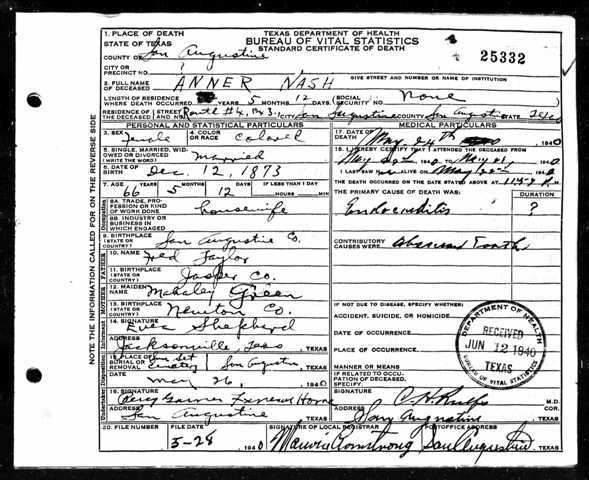 TEXAS DEPARTMENT OF HEALTH
BUREAU OF VITAL STATISTICS
STANDARD CERTIFICATE OF DEATH
25332
1. PLACE OF DEATH
STATE OF TEXAS
COUNTY OF San Augustine
CITY OR PRECINCT NO.
GIVE STREET AND NUMBER OR NAME OF INSTITUTION
2. FULL NAME OF DECEASED ANNER NASH
LENGTH OF RESIDENCE WHERE DEATH OCCURRED YEARS 5 MONTHS 12 DAYS SOCIAL SECURITY NO. None
RESIDENCE OF THE DECEASED STREET AND NO. CITY San Augustine COUNTY San Augustine STATE
PERSONAL AND STATISTICAL PARTICULARS
3. SEX Female
4. COLOR OR RACE Colored
5. SINGLE, MARRIED, WIDOWED OR DIVORCED (WRITE THE WORD) Married
6. DATE OF BIRTH Dec. 12, 1873
7. AGE 66 YEARS 5 MONTHS 12 DAYS IF LESS THAN 1 DAY HOURS MIN
8A. TRADE, PROFESSION OR KIND OF WORK DONE housewife
8B. INDUSTRY OR BUSINESS IN WHICH ENGAGED
9. BIRTHPLACE (STATE OR COUNTRY) San Augustine Co.
10. NAME Fred Taylor
11. BIRTHPLACE (STATE OR COUNTRY) Jasper Co.
12. MAIDEN NAME Mahaley Green
13. BIRTHPLACE (STATE OR COUNTRY) Newton Co.
14. SIGNATURE Evea Shephard
ADDRESS Jacksonville, Texas TEXAS
15. PLACE OF BURIAL OR REMOVAL Sun Set Cemetery San Augustine TEXAS
DATE May 26, 1940
16. SIGNATURE Percy Garner Funeral Home
ADDRESS San Augustine TEXAS
20. FILE NUMBER
FILE DATE 5-28 1940
MEDICAL PARTICULARS
17. DATE OF DEATH May 24th 1940
18. I HEREBY CERTIFY THAT I ATTENDED THE DECEASED FROM
1940 TO May 1940
I LAST SAW ALIVE ON May 1940
THE DEATH OCCURRED ON THE DATE STATED ABOVE AT
THE PRIMARY CAUSE OF DEATH WAS: DURATION
Endocarditis ?
CONTRIBUTORY CAUSES WERE: Abscessed Tooth ?
IF NOT DUE TO DISEASE, SPECIFY WHETHER:
ACCIDENT, SUICIDE, OR HOMICIDE
DATE OF OCCURRENCE
PLACE OF OCCURRENCE
MANNER OR MEANS
IF RELATED TO OCCUPATION OF DECEASED, SPECIFY
DEPARTMENT OF HEALTH
RECEIVED
JUN 12 1940
TEXAS
BUREAU OF VITAL STATISTICS
19. SIGNATURE M.D.
ADDRESS San Augustine TEXAS
SIGNATURE OF LOCAL REGISTRAR POSTOFFICE ADDRESS
Armstrong San Augustine, TEXAS
NOTE THE INFORMATION CALLED FOR ON THE REVERSE SIDE